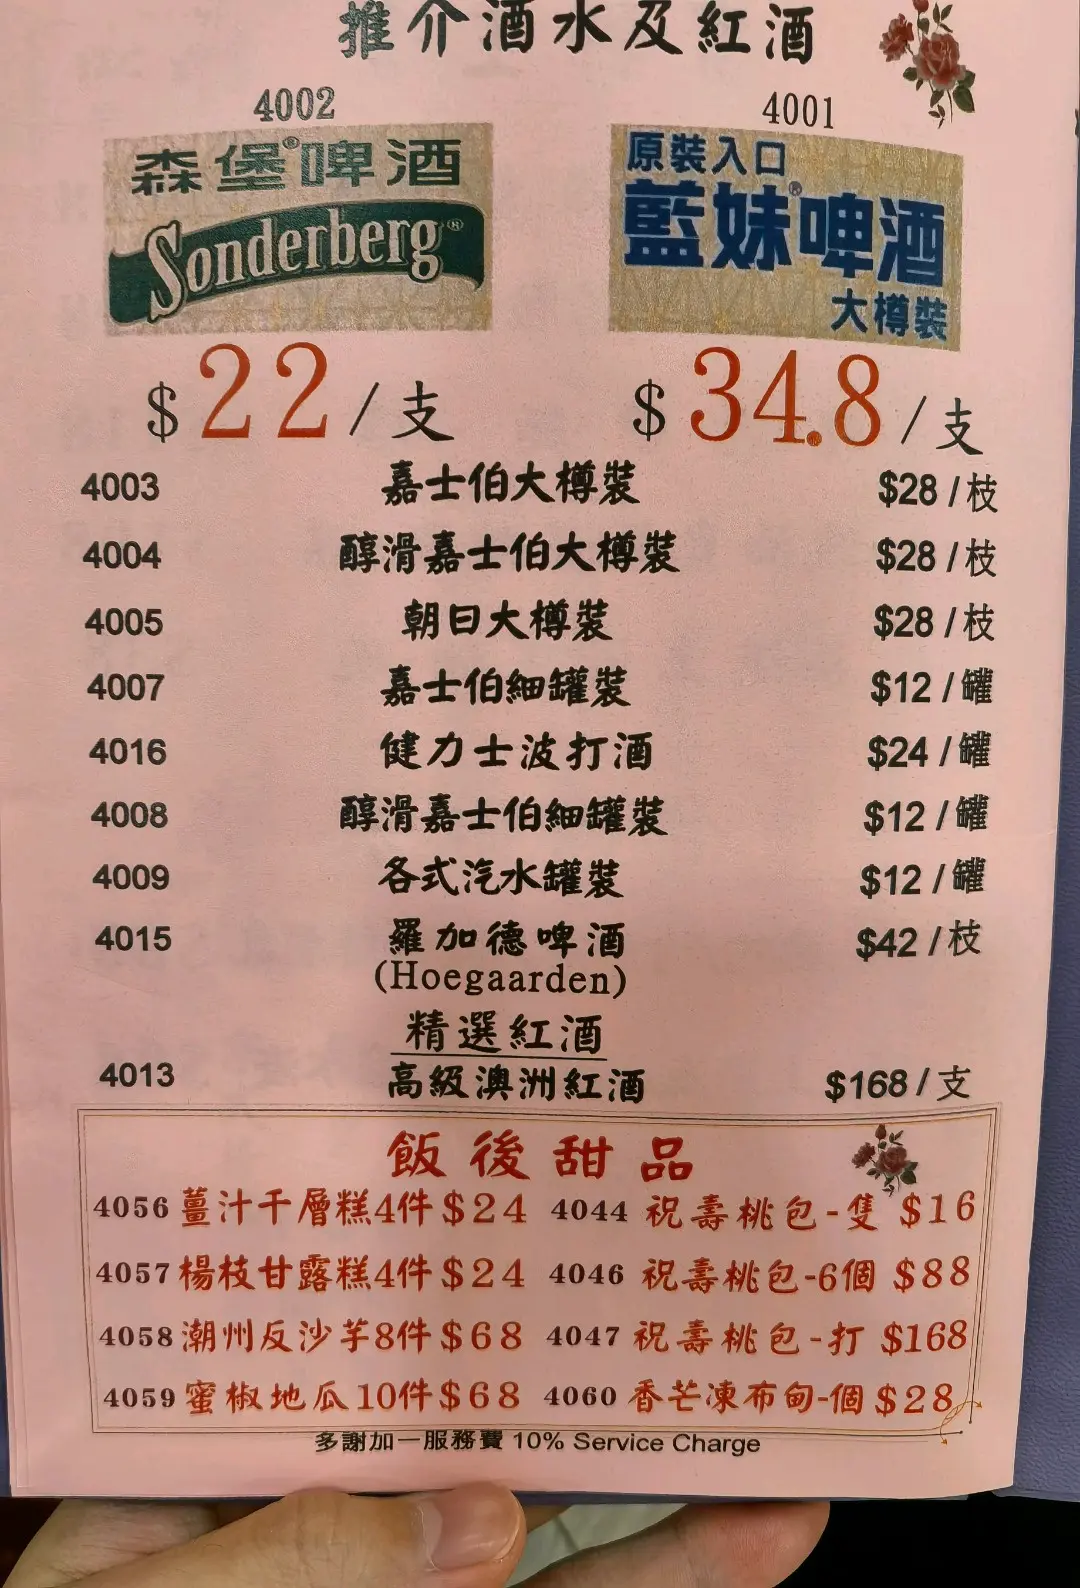 推介酒水及紅酒
4002
森堡®啤酒
Sonderberg®
$22/支
4001
原裝入口
藍妹®啤酒
大樽裝
$34.8/支
4003 嘉士伯大樽裝 $28/枝
4004 醇滑嘉士伯大樽裝 $28/枝
4005 朝日大樽裝 $28/枝
4007 嘉士伯細罐裝 $12/罐
4016 健力士波打酒 $24/罐
4008 醇滑嘉士伯細罐裝 $12/罐
4009 各式汽水罐裝 $12/罐
4015 羅加德啤酒 $42/枝
(Hoegaarden)
精選紅酒
4013 高級澳洲紅酒 $168/支
飯後甜品
4056 薑汁千層糕4件$24 4044 祝壽桃包-隻 $16
4057 楊枝甘露糕4件$24 4046 祝壽桃包-6個 $88
4058 潮州反沙芋8件$68 4047 祝壽桃包-打 $168
4059 蜜椒地瓜10件$68 4060 香芒凍布甸-個 $28
多謝加一服務費 10% Service Charge